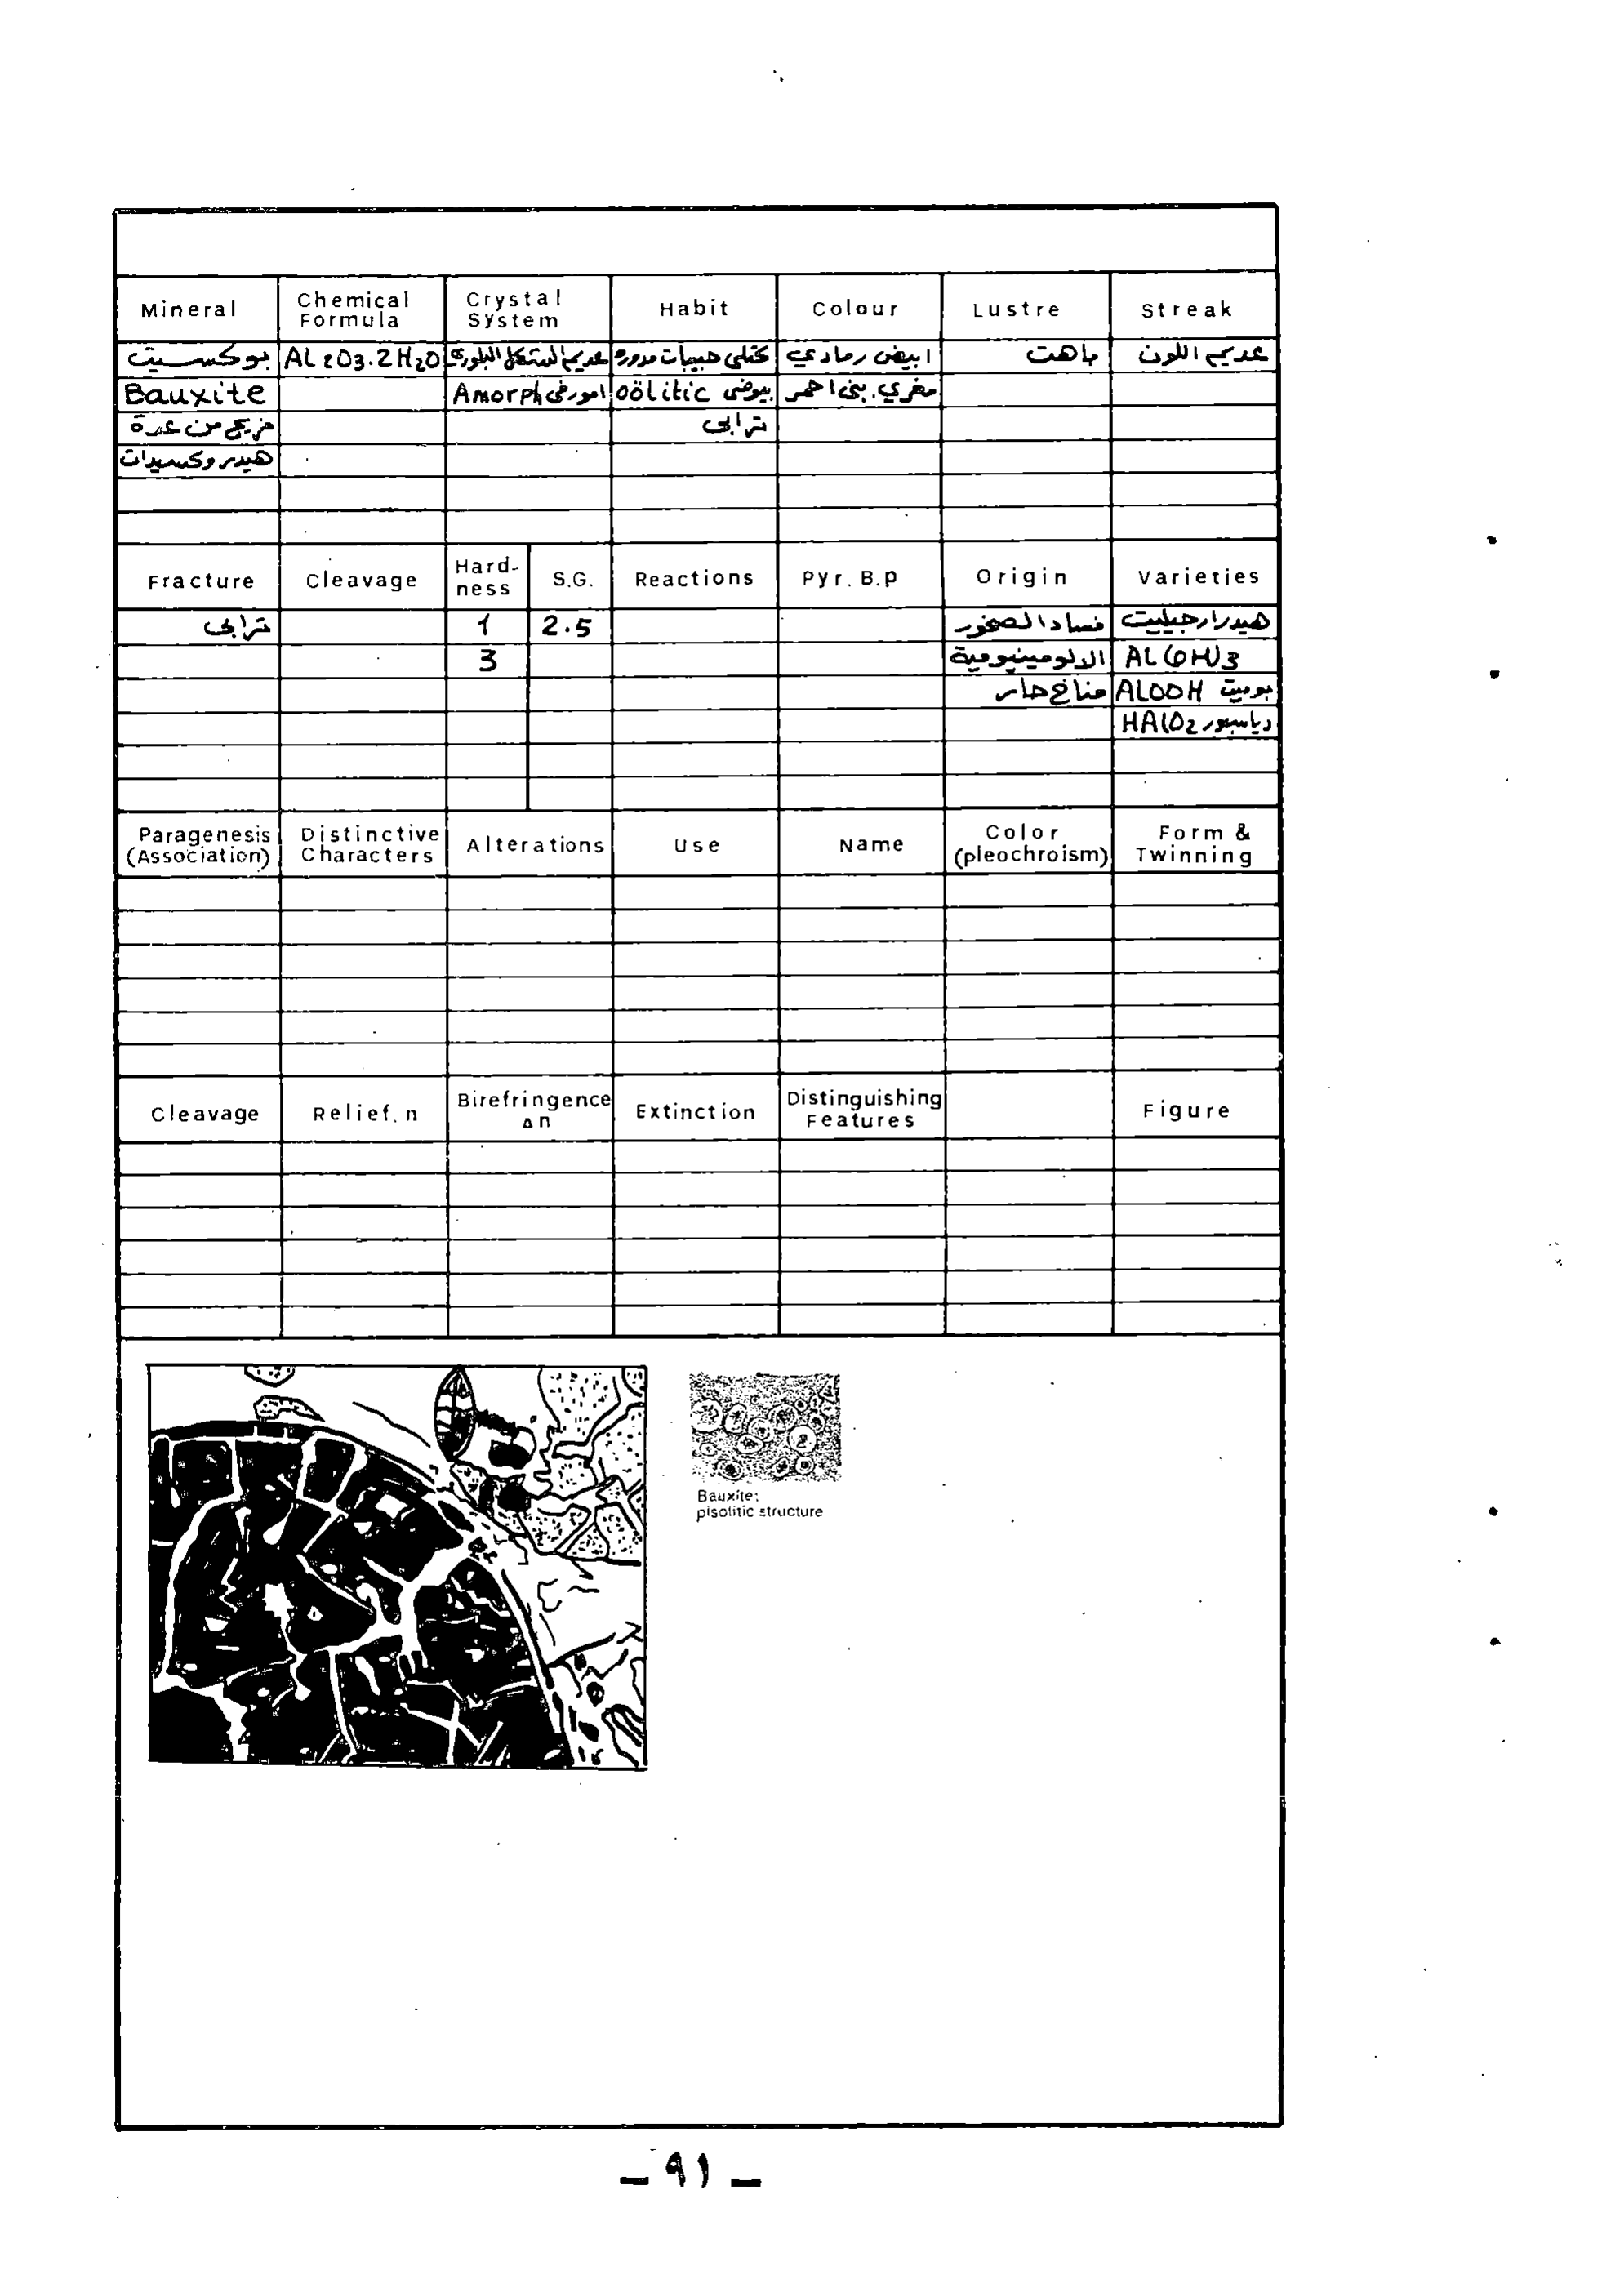 Mineral Chemical Formula Crystal System Habit Colour Lustre Streak
بوكسيت AL2O3.2H2O عديم الشكل البلوري كتلي حبيبات مدورة ابيض رمادي باهت عديم اللون
Bauxite Amorph امورفي oölitic بيوضي مغري. بني احمر
مزيج من عدة ترابي
هيدروكسيدات
Fracture Cleavage Hard-ness S.G. Reactions Pyr. B.p Origin Varieties
ترابي 1 2.5 فساد الصخور هيدرارجيليت
3 الالومينيومية AL(OH)3
مناخ حار بوميت ALOOH
دياسبور HAlO2
Paragenesis (Association) Distinctive Characters Alterations Use Name Color (pleochroism) Form & Twinning
Cleavage Relief. n Birefringence Δn Extinction Distinguishing Features Figure
Bauxite:
pisolitic structure
– ٩١ –